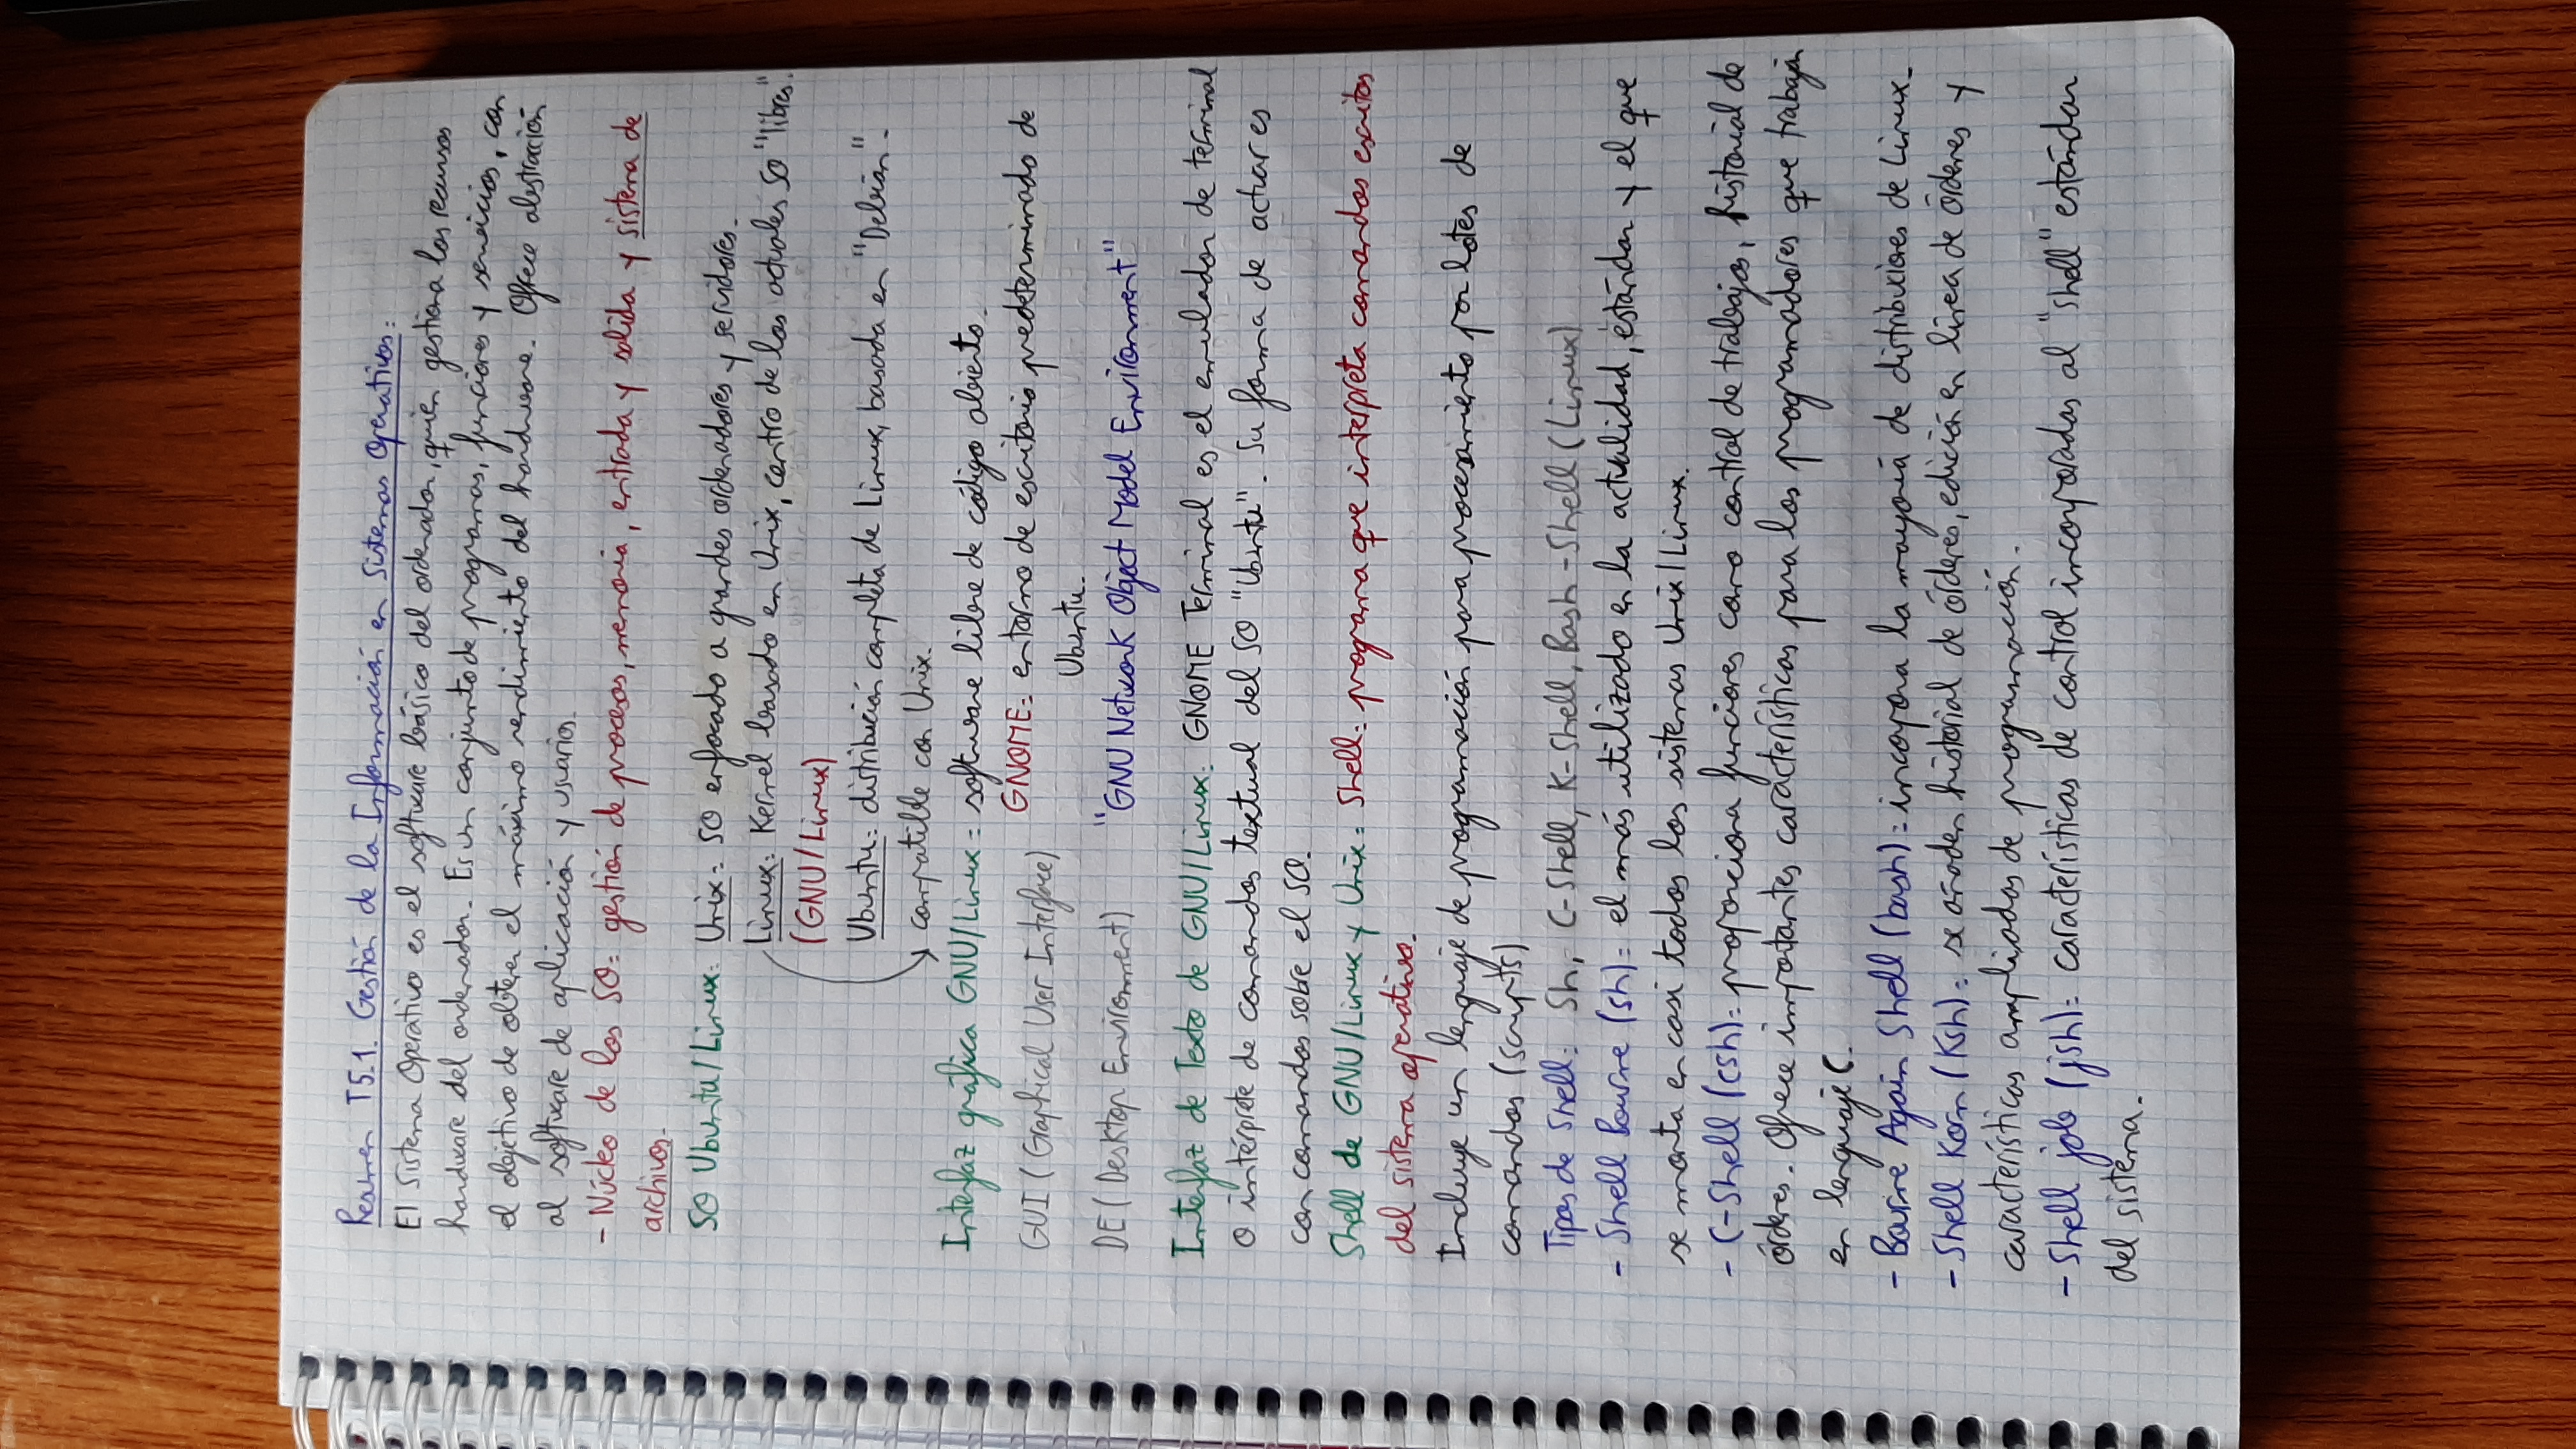 Resumen T5.1. Gestión de la Información en Sistemas Operativos:
El Sistema Operativo es el software básico del ordenador, quién gestiona los recursos
hardware del ordenador. Es un conjunto de programas, funciones y servicios, con
el objetivo de obtener el máximo rendimiento del hardware. Ofrece abstracción
al software de aplicación y usuarios.
- Núcleo de los SO: gestión de procesos, memoria, entrada y salida y sistema de
archivos.
SO Ubuntu/Linux: Unix: SO enfocado a grandes ordenadores y servidores.
Linux: Kernel basado en Unix, centro de los actuales SO "libres".
(GNU/Linux)
Ubuntu: distribución completa de Linux, basada en "Debian".
compatible con Unix.
Interfaz gráfica GNU/Linux: software libre de código abierto.
GUI (Graphical User Interface) GNOME: entorno de escritorio predeterminado de
Ubuntu.
DE (Desktop Environment) "GNU Network Object Model Environment"
Interfaz de Texto de GNU/Linux: GNOME Terminal es el emulador de terminal
o intérprete de comandos textual del SO "Ubuntu". Su forma de actuar es
con comandos sobre el SO.
Shell de GNU/Linux y Unix: Shell: programa que interpreta comandos escritos
del sistema operativo.
Incluye un lenguaje de programación para procesamiento por lotes de
comandos (scripts)
Tipos de Shell: Sh, C-Shell, K-Shell, Bash-Shell (Linux)
- Shell Bourne (sh): el más utilizado en la actualidad, estándar y el que
se monta en casi todos los sistemas Unix/Linux.
- C-Shell (csh): proporciona funciones como control de trabajos, historial de
órdenes. Ofrece importantes características para los programadores que trabajan
en lenguaje C.
- Bourne Again Shell (bash): incorpora la mayoría de distribuciones de Linux.
- Shell Korn (Ksh): se añaden historial de órdenes, edición en línea de órdenes y
características ampliadas de programación.
- Shell job (jsh): características de control incorporadas al "shell" estándar
del sistema.